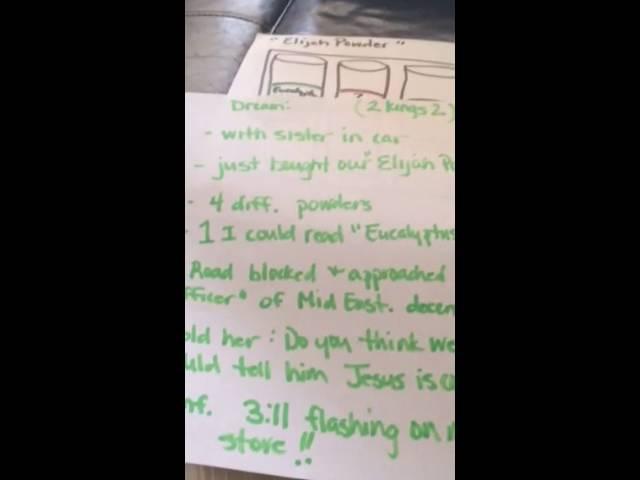 "Elijah Powder"
Eucalyptus
Dream: (2 Kings 2)
- with sister in car
- just bought our "Elijah Po
- 4 diff. powders
- 1 I could read "Eucalyptus
Road blocked + approached
fficer" of Mid East. decen
old her : Do you think we
uld tell him Jesus is
nf. 3:11 flashing on
store !!